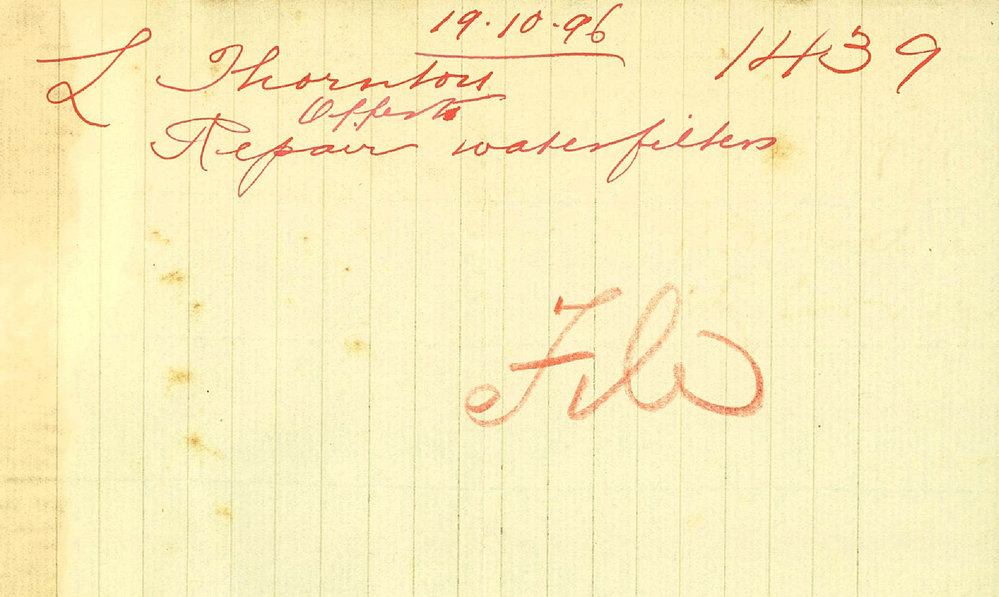 19.10.96
1439
L Thornton
Offers to
Repair waterfilters
File